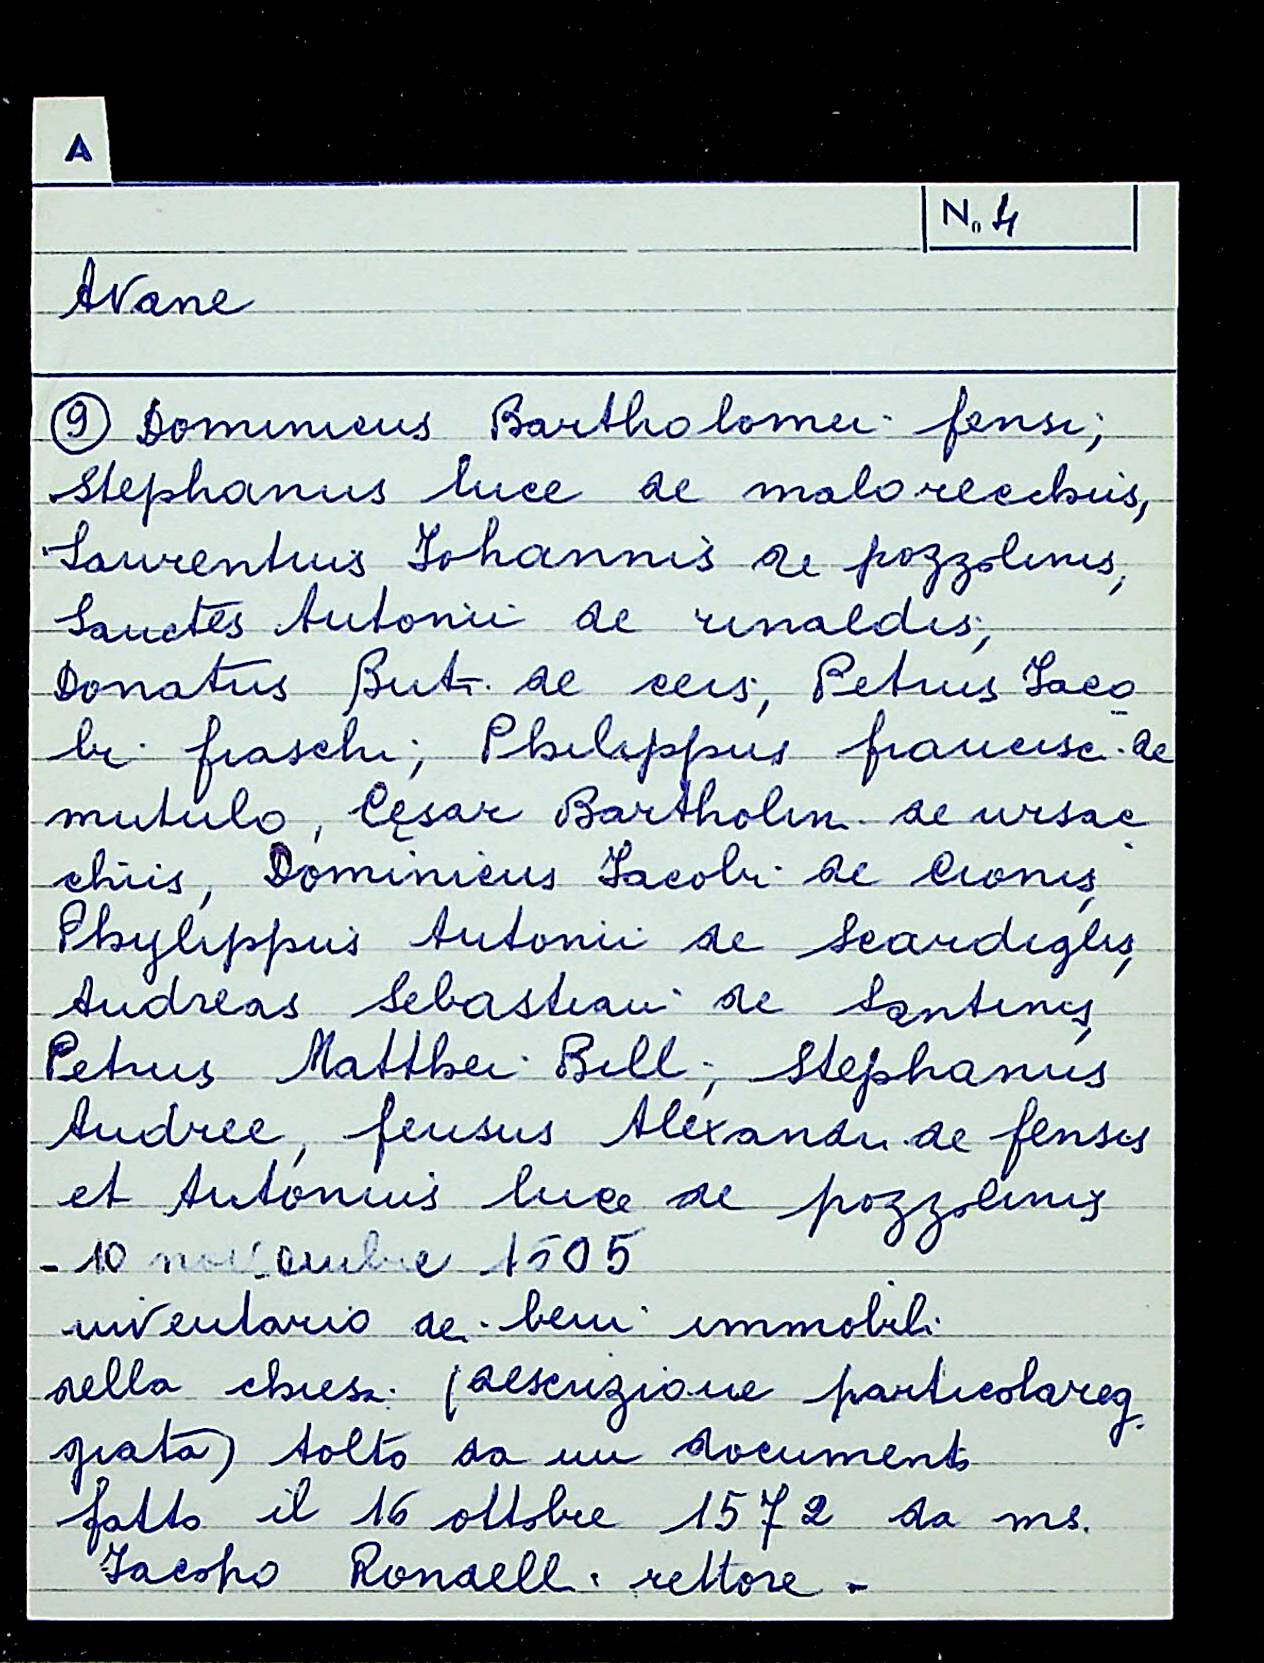 A
No 4
Avane
⑨ Dominicus Bartholomei fensi;
Stephanus luce de malorecchiis,
Laurentius Johannis de pozzolinis,
Sanctes Antonii de rinaldis;
Donatus de ceis; Petrus Jaco
bi fraschi; Philippus francisci de
mutulo, Cęsar Bartholin de ursac
chiis, Dominicus Jacobi de Cionis,
Phylippus Antonii de Scardiglis,
Andreas Sebastiani de Santinis,
Petrus Matthei Bell; Stephanus
Andree, fensus Alexandri de fensis
et Antonius luce de pozzolinis
- 10 novembre 1505
inventario dei beni immobili
della chiesa (descrizione particolareg
giata) tolto da un documento
fatto il 16 ottobre 1572 da ms.
Jacopo Rondelli rettore -